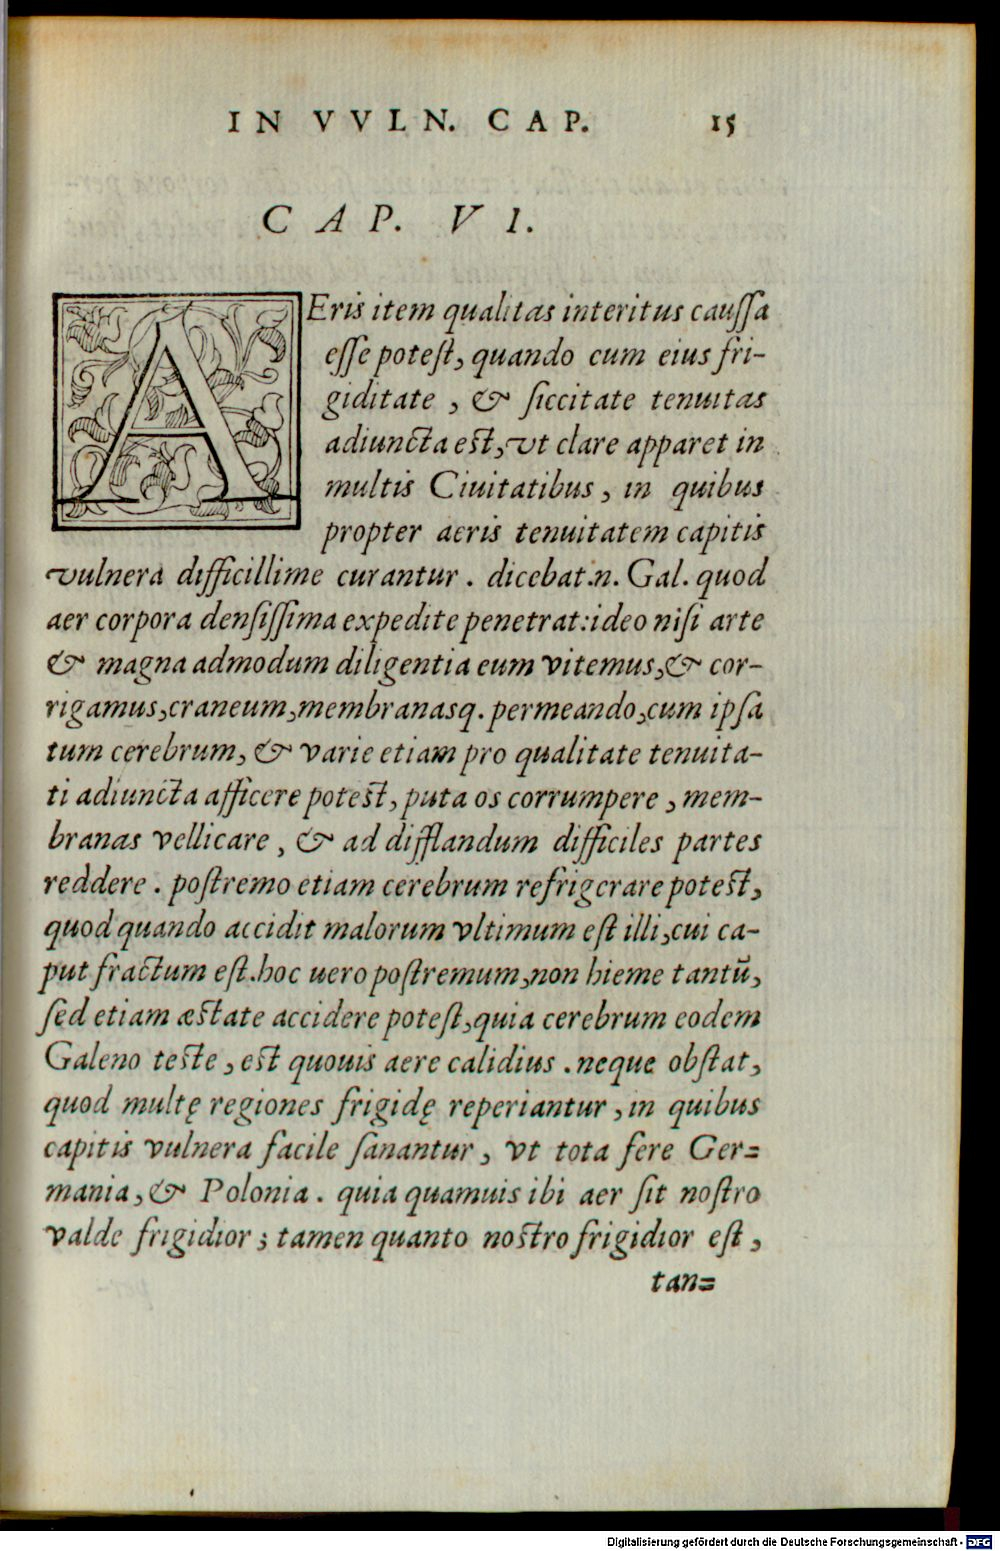 IN VVLN. CAP. 15
CAP. VI.
AEris item qualitas interitus caussa
esse potest, quando cum eius fri-
giditate, & siccitate tenuitas
adiuncta est, vt clare apparet in
multis Ciuitatibus, in quibus
propter aeris tenuitatem capitis
vulnera difficillime curantur. dicebat.n. Gal. quod
aer corpora densissima expedite penetrat: ideo nisi arte
& magna admodum diligentia eum vitemus, & cor-
rigamus, craneum, membranasq. permeando, cum ipsa
tum cerebrum, & varie etiam pro qualitate tenuita-
ti adiuncta afficere potest, puta os corrumpere, mem-
branas vellicare, & ad difflandum difficiles partes
reddere. postremo etiam cerebrum refrigerare potest,
quod quando accidit malorum vltimum est illi, cui ca-
put fractum est. hoc uero postremum, non hieme tantũ,
sed etiam æstate accidere potest, quia cerebrum eodem
Galeno teste, est quouis aere calidius. neque obstat,
quod multę regiones frigidę reperiantur, in quibus
capitis vulnera facile sanantur, vt tota fere Ger=
mania, & Polonia. quia quamuis ibi aer sit nostro
valde frigidior; tamen quanto nostro frigidior est,
tan=
Digitalisierung gefördert durch die Deutsche Forschungsgemeinschaft - DFG